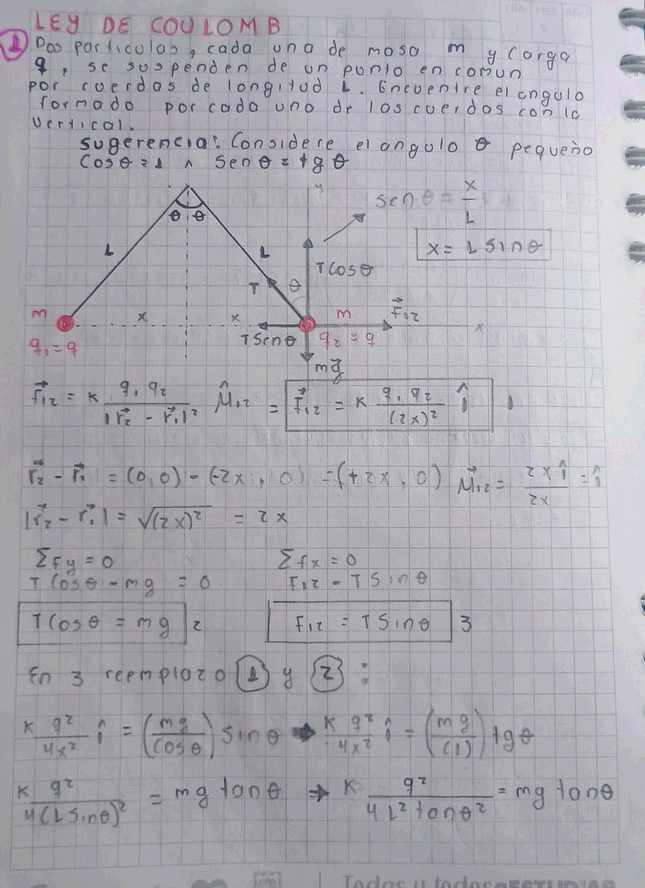 LEY DE COULOMB
1 Dos particulas, cada una de masa m y carga
q, se suspenden de un punto en comun
por cuerdas de longitud L. Encuentre el angulo
formado por cada una de las cuerdas con la
vertical.
Sugerencia: Considere el angulo θ pequeño
Cosθ = 1 ∧ Senθ = tgθ
y
senθ = x/L
x = L Sinθ
θ θ
L L
T Cosθ
T θ
m x x m F⃗12 x
q1 = q TSenθ q2 = q
mg⃗
F⃗12 = K q1 q2 / |r⃗2 - r⃗1|² μ̂12 = F⃗12 = K q1 q2 / (2x)² î 1
r⃗2 - r⃗1 = (0,0) - (-2x, 0) = (+2x, 0) μ⃗12 = 2x î / 2x = î
|r⃗2 - r⃗1| = √(2x)² = 2x
Σfy = 0 Σfx = 0
T Cosθ - mg = 0 F12 - T Sinθ
T Cosθ = mg 2 F12 = T Sinθ 3
En 3 reemplazo 1 y 2 :
K q²/4x² î = (mg/Cosθ) Sinθ → K q²/4x² î = (mg/(1)) tgθ
K q²/4(L Sinθ)² = mg tanθ ⇒ K q²/4 L² tanθ² = mg tanθ
Todas y todos ESTUDIAR
DIA MES AÑO